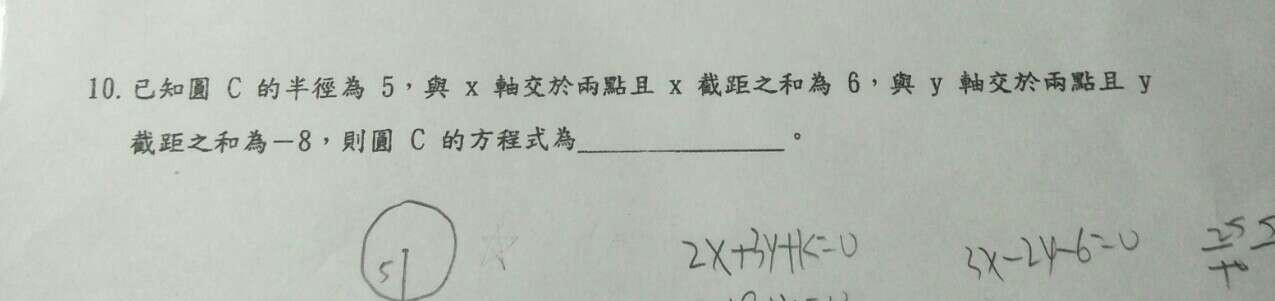 10. 已知圓 C 的半徑為 5，與 x 軸交於兩點且 x 截距之和為 6，與 y 軸交於兩點且 y
截距之和為－8，則圓 C 的方程式為＿＿＿＿＿＿＿＿。
5
2x+3y+k=0
3x-2y-6=0
25